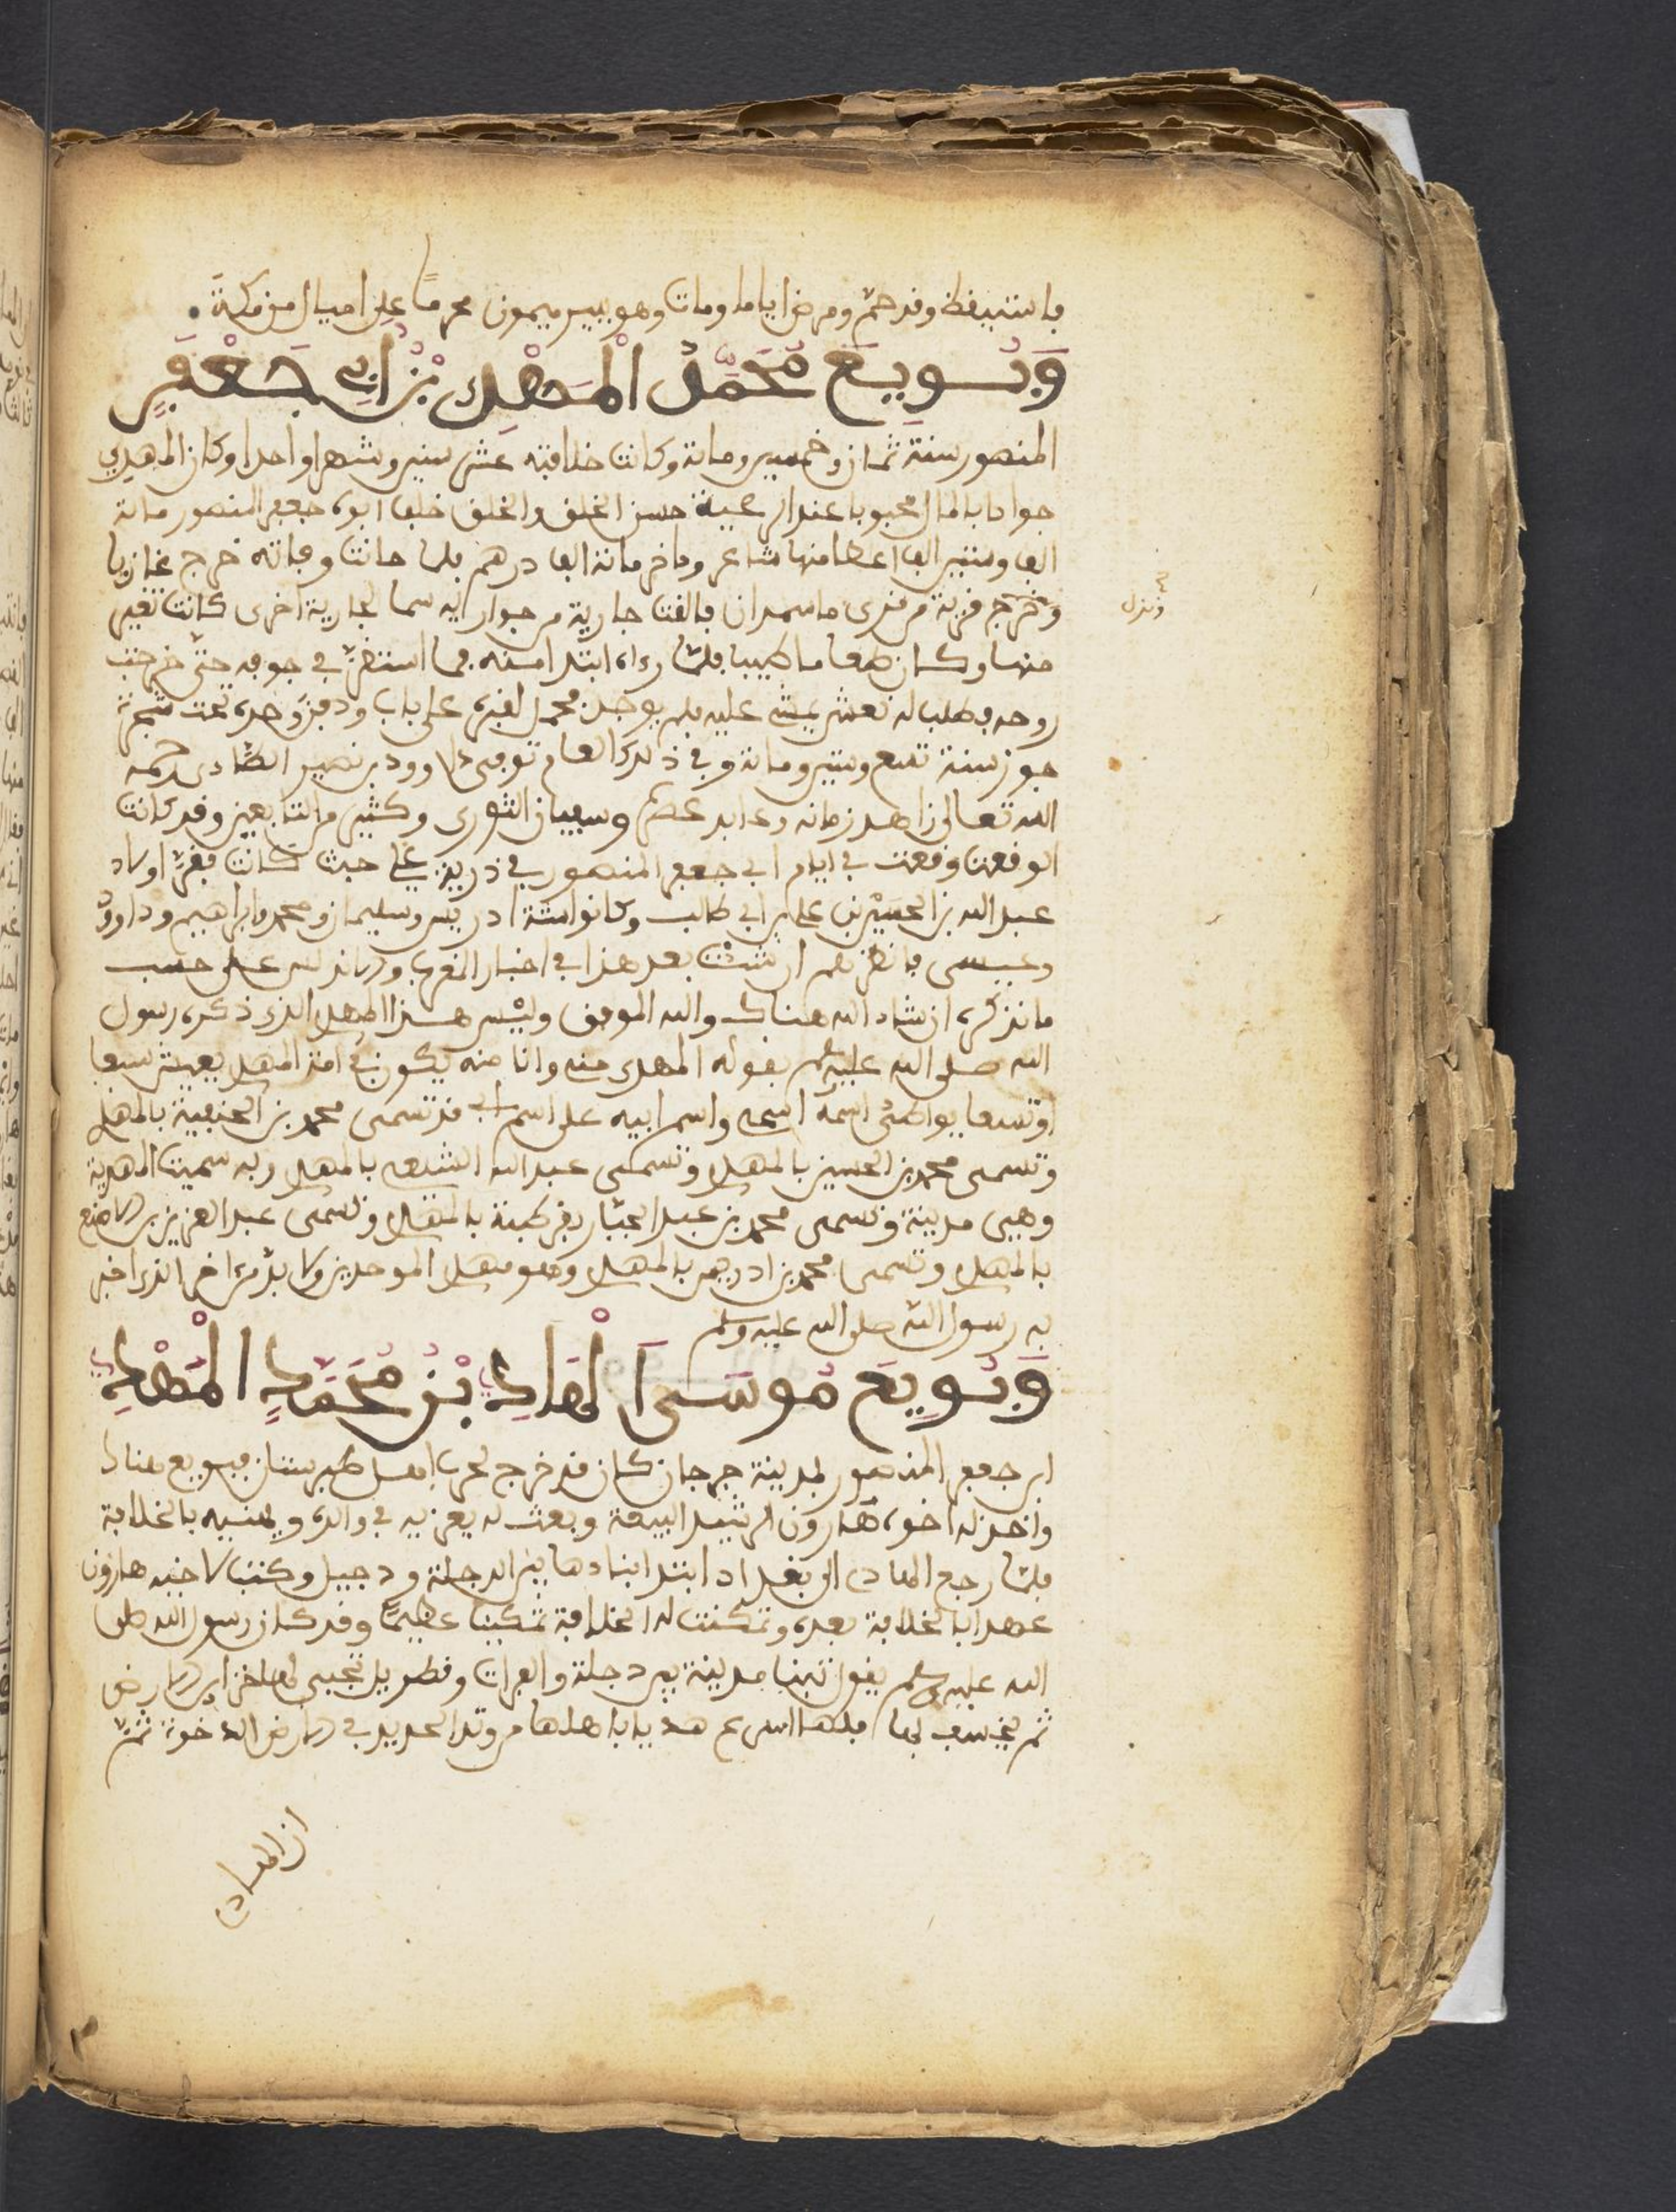 فاستيقظ وقد حمّ ومرض اياما ومات وهو ببير ميمون محرمًا على اميال من مكة
وَبُويِعَ مُحَمَّدُ الْمَهْدِي بْنُ أبِي جَعْفَرٍ
المنصور سنة ثمان وخمسين ومائة وكانت خلافته عشر سنين وشهرا واحدا وكان المهدي
جوادا بالمال محبوبا عند الرعية حسن الخلق والخلق خلف ابوه جعفر المنصور مائة
الف وستين الفا اعطا منها شاعر وداخر مائة الف درهم فلما حانت وفاته خرج غازيا
وخرج قرية من قرى ماسبدان فالقت جارية من جواريه سما لجارية اخرى كانت تغير
وتنزل
منها وكان طعاما طيبا فلمّا رءاه ابتدا منه فما استقرّ في جوفه حتّى خرجت
روحه فطلب له نعش يمشى عليه فلم يوجد محمل لقبره على باب ودفن وحده تحت شجرة
جوز سنة تسع وستين ومائة وفي ذلك العام توفى داوود بن نصير الطّاءى رحمه
الله تعالى زاهد زمانه وعابد عصره وسفيان الثورى وكثير من التابعين وقد كانت
الوقعت وقعت في ايام ابي جعفر المنصور في ذرية علي حيث كانت بفخّ اولاد
عبد الله بن الحسين بن علي بن ابي طالب وكانوا ستة ادريس وسليمان ومحمد وابراهيم وداوودُ
وعيسى فانظرهم ان شئت بعد هذا في اخبار المغرب والاندلس على حسب
ما نذكره ان شاء الله هناك والله الموفق وليْس هذا المهدي الذى ذكره رسول
الله صلى الله عليه وسلم بقوله المهدى منى وانا منه يكون في امتى المهدي يعيش سبعا
او تسعا يواطئ اسمه اسمى واسم ابيه على اسم ابى قد تسمى محمد بن الحنفية بالمهدي
وتسمى محمد بن الحسين بالمهدي وتسمى عبد الله الشيعى بالمهدي وبه سميت المهدية
وهيى مدينة وتسمى محمد بن عبد الجبّار بقرطبة بالمهدي وتسمى عبد العزيز بن الاصبع
بالمهدي وتسمى محمد بن ادريس بالمهدي وهو مهدي الموحدين ولا بدّ من ءاخر الذى اخبر
به رسول الله صلى الله عليه وسلم
وَبُويِعَ مُوسَى الْهَادِي بْنُ مُحَمَّدٍ الْمَهْدِي
ابن جعفر المنصور لمدينة جرجان كان قد خرج لحرب اهل طبرستان فبويع هناك
واخذ له اخوه هَارُون الرشيد البيعة وبعث له يعزيه في والده ويهنيه بالخلافة
فلمّا رجع الهادى الى بغداد ابتدا بناءها بين الدجلة ودجيل وكتب لاخيه هارون
عهدا بالخلافة بعده وتمكنت له الخلافة تمكينا عظيمًا وقد كان رسول الله صلى
الله عليه وسلم يقول تبنا مدينة بين دجلة والفرات وقطربل تجبى لها خزاين الارض
ثم يخسف بها فلهي اسرع هديا باهلها من وتد الحديد في الارض الرخوة ثمّ
ان الهادي